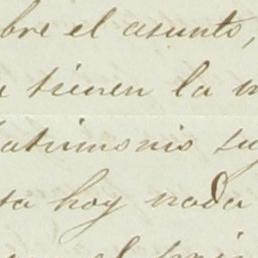 bre el asunto,
tienen la
atrimonio su
ta hoy nada
el